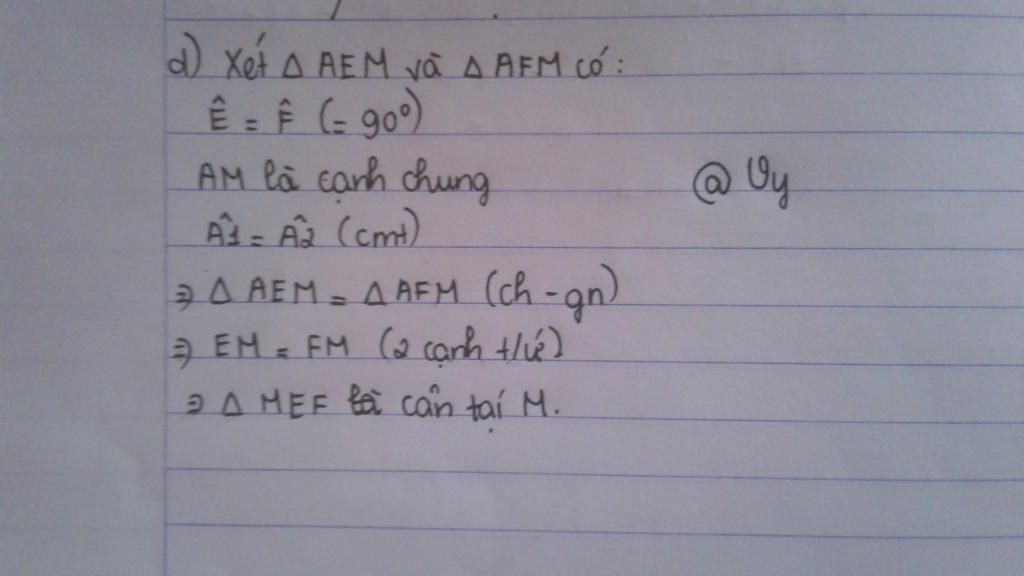 d) Xét Δ AEM và Δ AFM có:
Ê = F̂ (= 90°)
AM là cạnh chung @ Vy
Â1 = Â2 (cmt)
⇒ Δ AEM = Δ AFM (ch - gn)
⇒ EM = FM (2 cạnh t/ứ)
⇒ Δ MEF cân tại M.